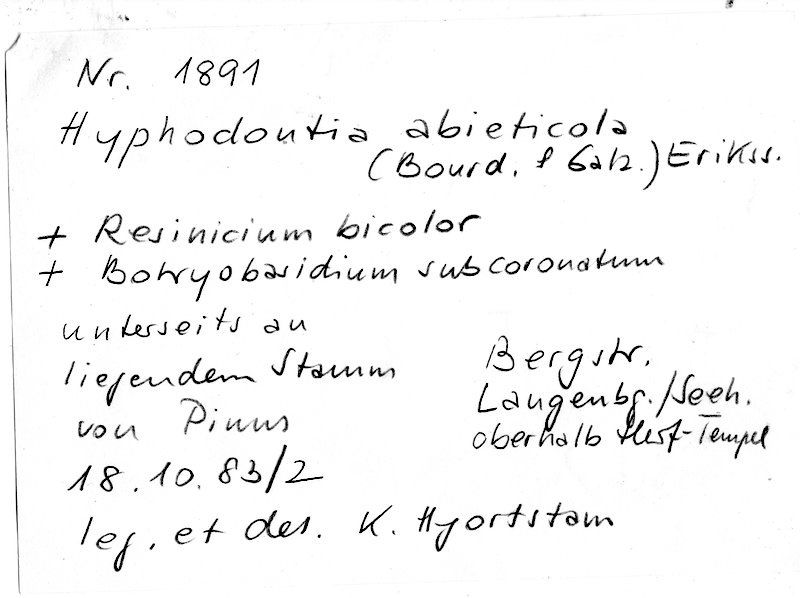 Nr. 1891
Hyphodontia abieticola
(Bourd. & Galz.) Erikss.
+ Resinicium bicolor
+ Botryobasidium subcoronatum
unterseits an
liegendem Stamm
von Pinus
18.10.83/2
leg. et des. K. Hjortstam
Bergstr.
Langenbg./Seeh.
oberhalb -Tempel